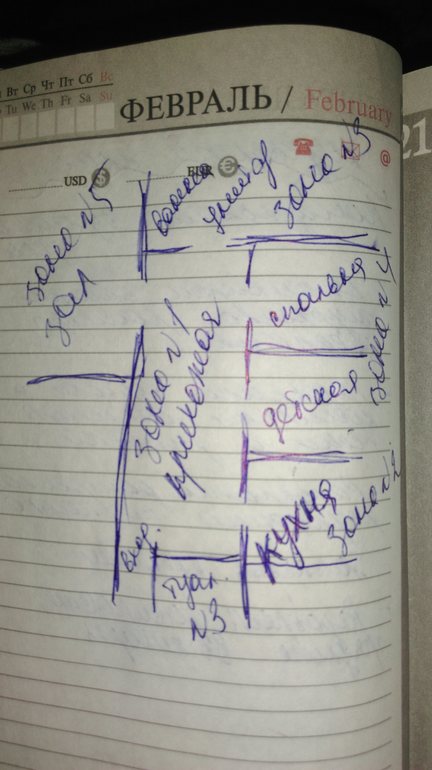 Вт Ср Чт Пт Сб Вс
Tu We Th Fr Sa Su
ФЕВРАЛЬ / February
21
USD $ EUR €
@
зона №5
зал
зона №3
зона №1
прихожая
спальня
зона №4
детская
кухня
зона №2
вход
туал.
№3